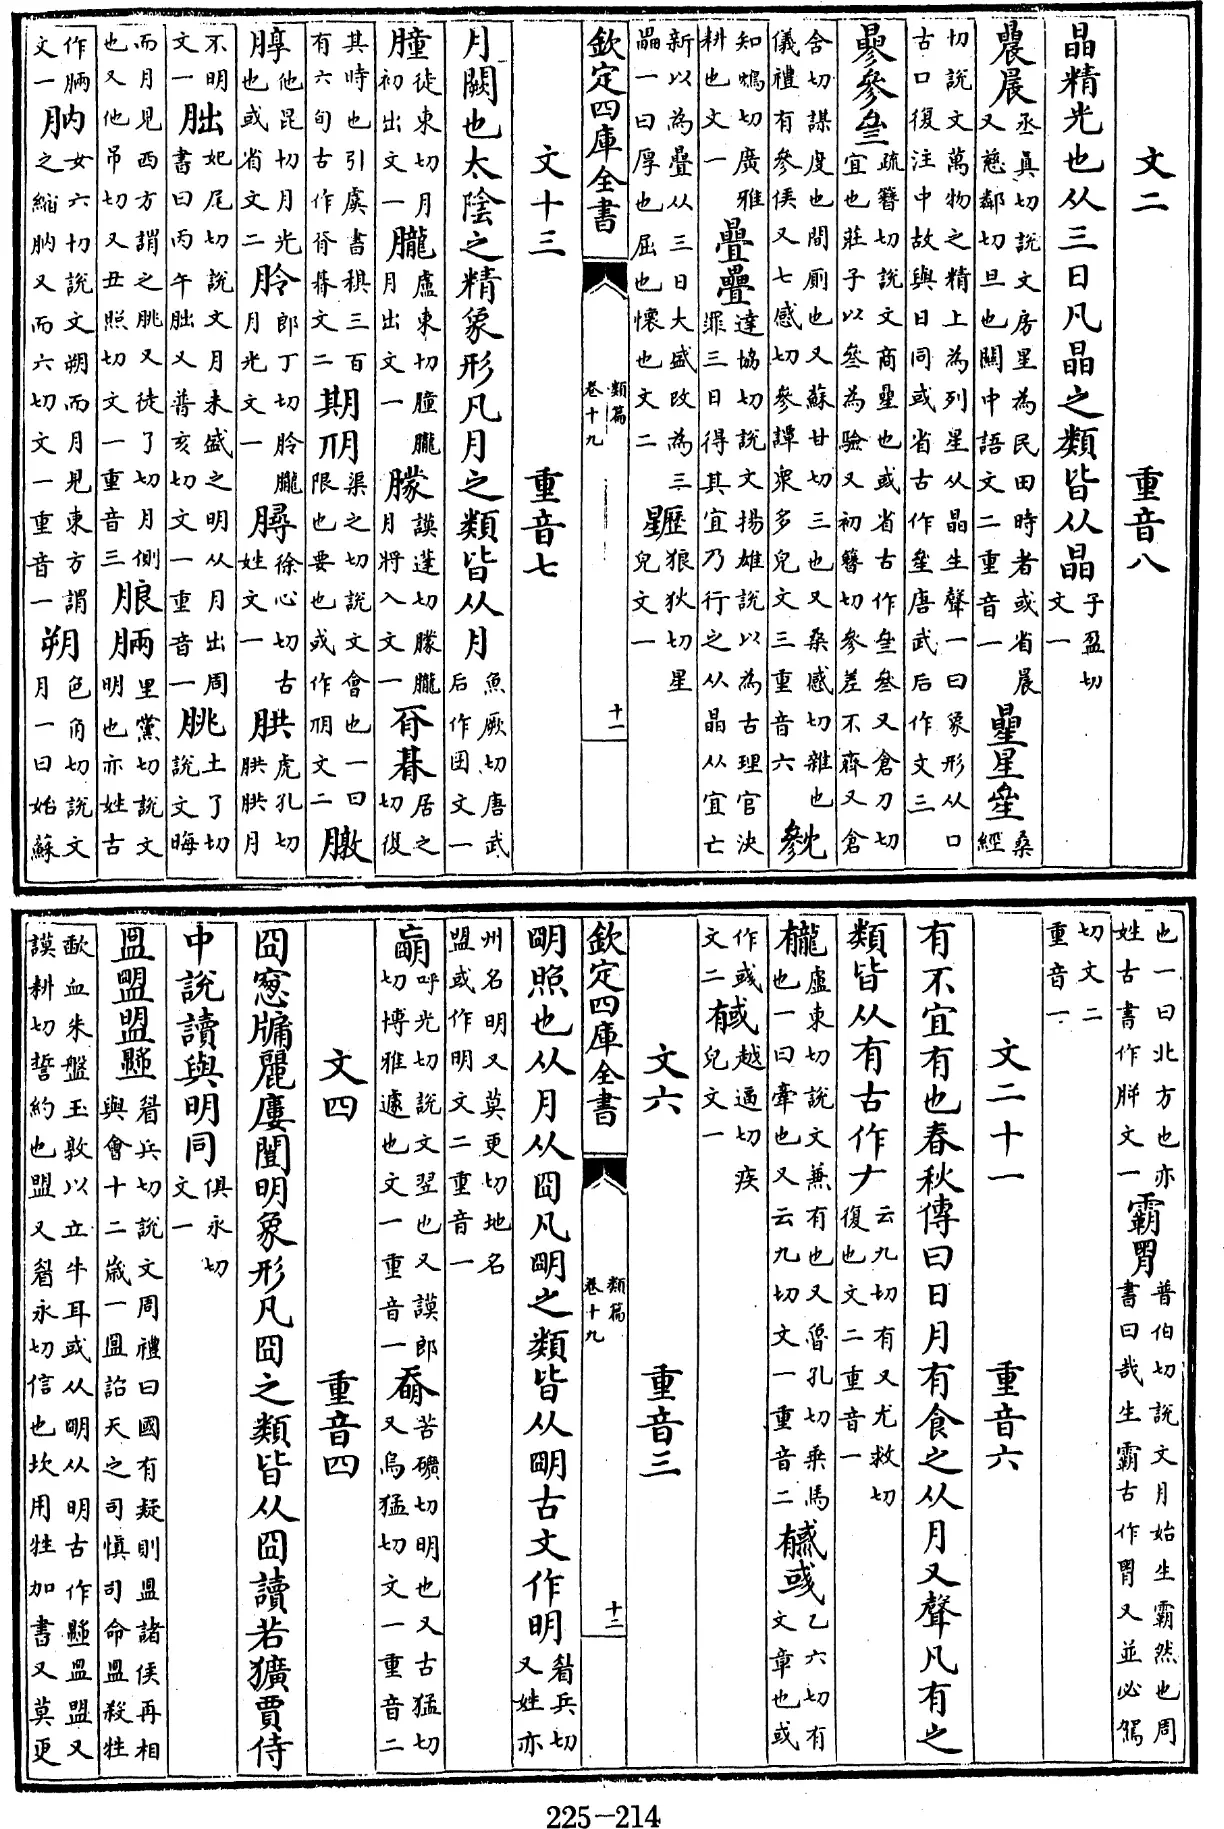 文二　重音八
晶精光也从三日凡晶之類皆从晶子盈切文一
曟晨丞真切說文房星為民田時者或省晨又慈鄰切旦也關中語文二重音一曐星桑經
切說文萬物之精上為列星从晶生聲一曰象形从口古口復注中故與日同或省古作唐武后作文三
曑參叄疏簪切說文商曐也或省古作叄叁又倉刀切宜也莊子以叄為驗又初簪切參差不齊又倉
含切謀度也間廁也又蘇甘切三也又桑感切雜也儀禮有參侯又七感切參譚衆多皃文三重音六
知鴆切廣雅耕也文一曡疊達協切說文揚雄說以為古理官決罪三日得其宜乃行之从晶从宜亡
新以為疊从三日大盛改為三畾一曰厚也屈也懷也文二狼狄切星皃文一
欽定四庫全書　類篇卷十九　十一
文十三　重音七
月闕也太陰之精象形凡月之類皆从月魚厥切唐武后作囝文一
膧徒東切月初出文一朧盧東切膧朧月出文一朦謨蓬切朦朧月將入文一朞居之切復
其時也引虞書稘三百有六旬古作朞文二期渠之切說文會也一曰限也要也或作文二
朜他昆切月光也或省文二朎郎丁切朎朧月光文一徐心切古姓文一虎孔切月
不明文一朏妃尾切說文月未盛之明从月出周書曰丙午朏又普亥切文一重音一朓土了切說文晦
而月見西方謂之朓又徒了切月側也又他弔切又丑照切文一重音三朖里黨切說文明也亦姓古
作文一肭女六切說文朔而月見東方謂之縮肭又而六切文一重音一朔色角切說文月一日始蘇
也一曰北方也亦姓古書作文一霸普伯切說文月始生霸然也周書曰哉生霸古作又並必駕
切文二重音一
文二十一　重音六
有不宜有也春秋傳曰日月有食之从月又聲凡有之
類皆从有古作𠂇云九切有又尤救切復也文二重音一
龓盧東切說文兼有也又魯孔切乗馬也一曰牽也又云九切文一重音二戫乙六切有文章也或
作戫文二越逼切疾皃文一
文六　重音三
欽定四庫全書　類篇卷十九　十二
朙照也从月从囧凡朙之類皆从朙古文作明眉兵切又姓亦
州名明又莫更切地名盟或作明文二重音一
呼光切說文翌也又謨郎切博雅遽也文一重音一苦礦切明也又古猛切又烏猛切文一重音二
文四　重音四
囧窻牖麗廔闓明象形凡囧之類皆从囧讀若獷賈侍
中說讀與明同俱永切文一
盟盟眉兵切說文周禮曰國有疑則盟諸侯再相與會十二歳一盟詔天之司慎司命盟殺牲
歃血朱盤玉敦以立牛耳或从明从明古作盟盟又謨耕切誓約也盟又眉永切信也坎用牲加書又莫更
225-214